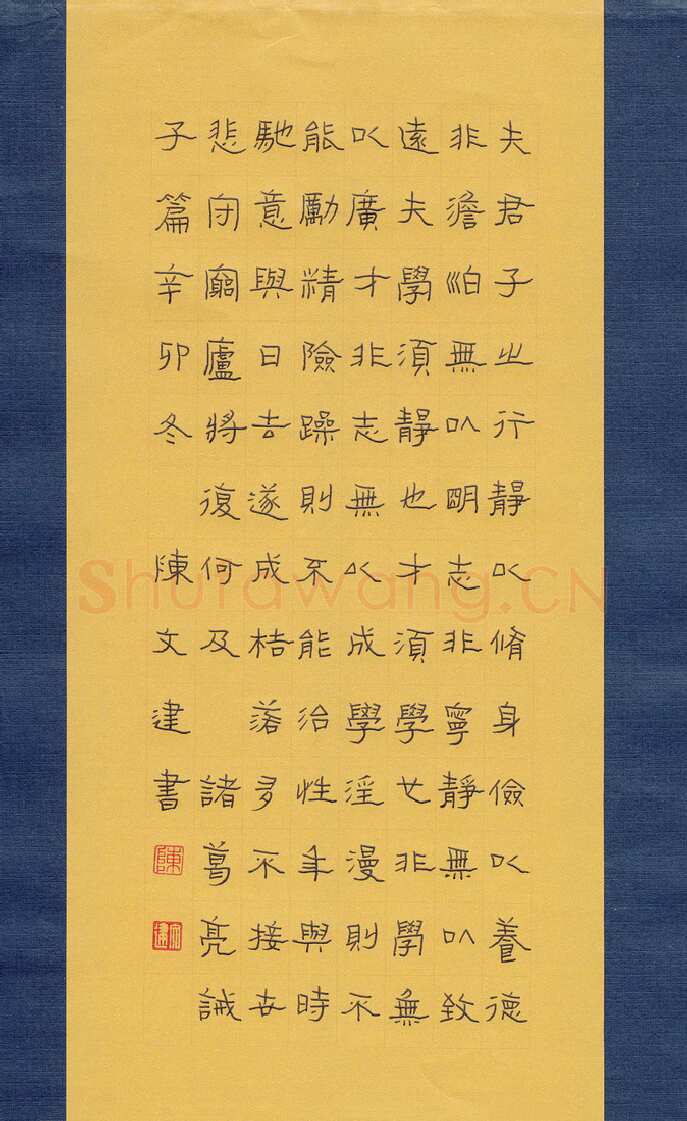 夫君子之行靜以脩身儉以養德
非澹泊無以明志非寧靜無以致
遠夫學須靜也才須學也非學無
以廣才非志無以成學淫漫則不
能勵精險躁則不能治性年與時
馳意與日去遂成枯落多不接世
悲守窮廬將復何及 諸葛亮誡
子篇辛卯冬 陳文建書
Shufawang.CN